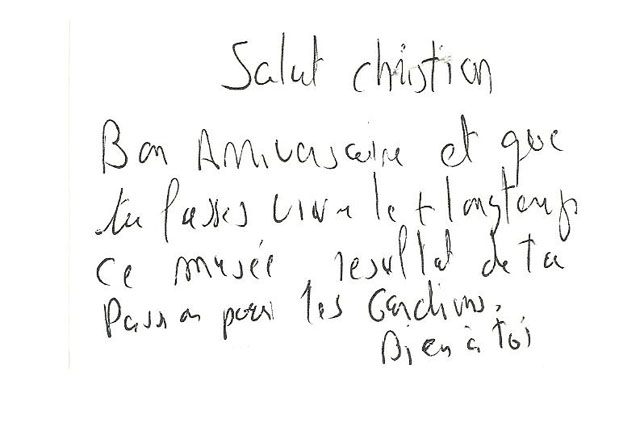 Salut christian
Bon Anniversaire et que
tu fasses vivre le + longtemps
ce musée resultat de ta
Passion pour les Gardians.
Bien à toi